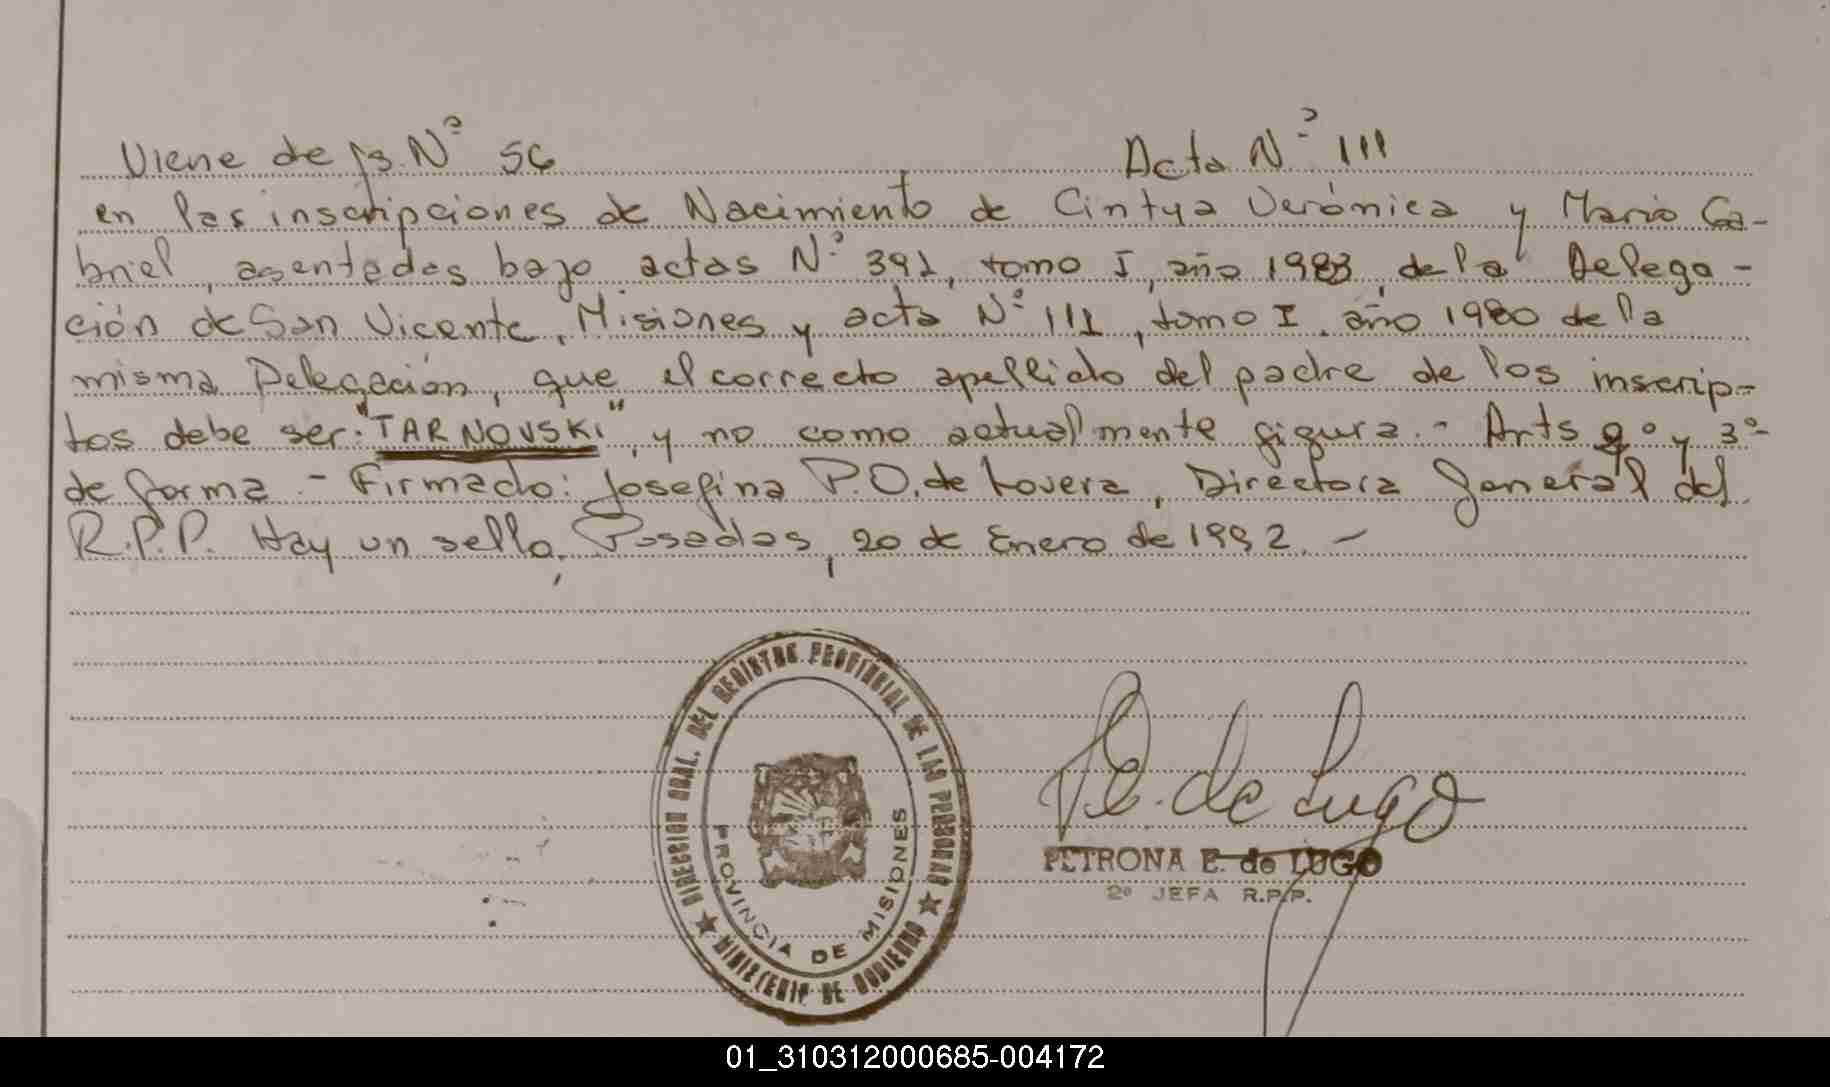 Viene de fs. Nº 56 Acta Nº 111
en las inscripciones de Nacimiento de Cintya Verónica y Mario Ga-
briel, asentados bajo actas Nº 391, tomo I, año 1983, de la Delega-
ción de San Vicente, Misiones y acta Nº 111, tomo I, año 1980 de la
misma Delegación, que el correcto apellido del padre de los inscrip-
tos debe ser: "TARNOVSKI", y no como actualmente figura.- Arts 2º y 3º
de forma.- Firmado: Josefina P.O. de Lovera, Directora General del
R.P.P. Hay un sello, Posadas, 20 de Enero de 1992.-
DIRECCION GRAL. DEL REGISTRO PROVINCIAL DE LAS PERSONAS
PROVINCIA DE MISIONES
MINISTERIO DE GOBIERNO
P. E. de Lugo
PETRONA E. de LUGO
2º JEFA R.P.P.
01_310312000685-004172